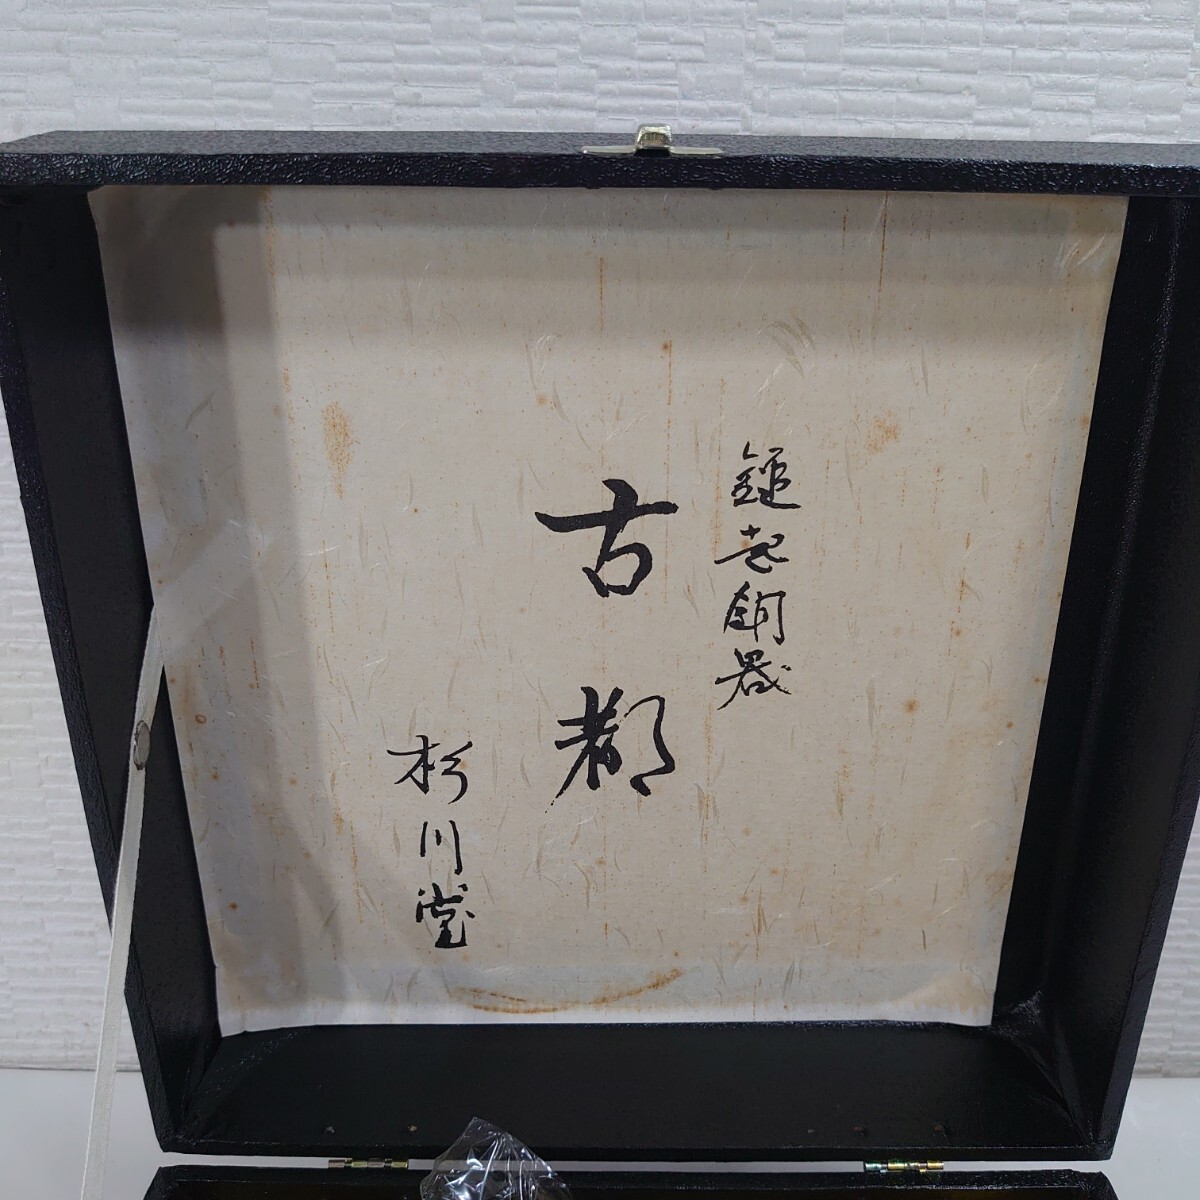 鎚起銅器
古都
杉川堂